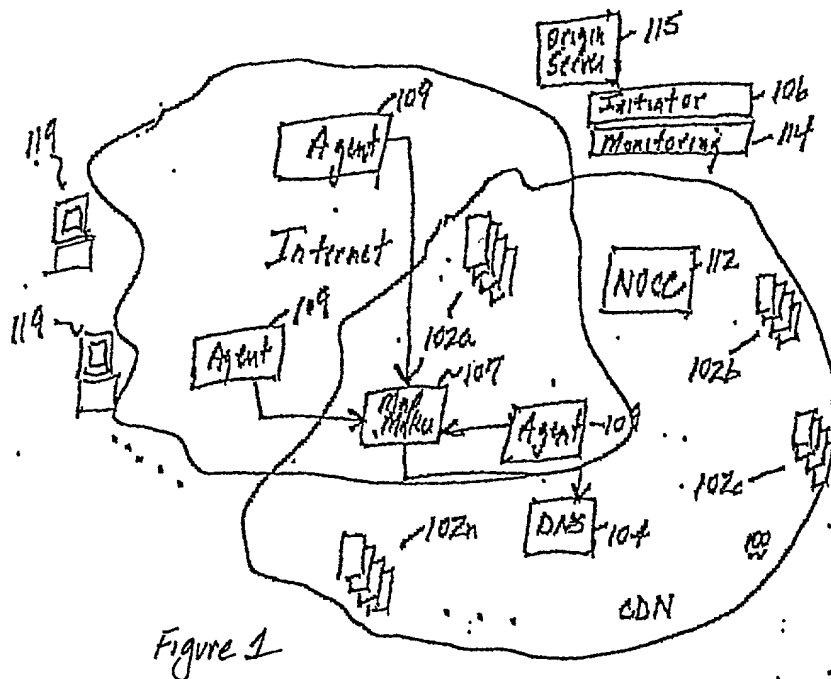 Origin
Server
115
Initiator
106
Monitoring
114
109
Agent
119
Internet
NOCC
112
119
109
Agent
102a
107
Map
Maker
Agent
109
102b
102c
DNS
104
102n
100
CDN
Figure 1